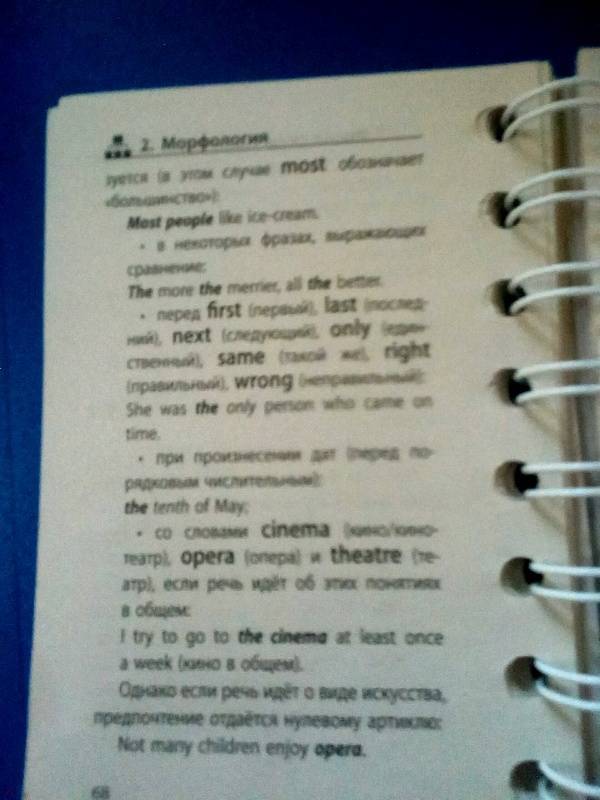 2. Морфология
зуется (в этом случае most обозначает
«большинство»):
Most people like ice-cream.
• в некоторых фразах, выражающих
сравнение:
The more the merrier, all the better.
• перед first (первый), last (послед-
ний), next (следующий), only (един-
ственный), same (такой же), right
(правильный), wrong (неправильный):
She was the only person who came on
time.
• при произнесении дат (перед по-
рядковым числительным):
the tenth of May;
• со словами cinema (кино/кино-
театр), opera (опера) и theatre (те-
атр), если речь идёт об этих понятиях
в общем:
I try to go to the cinema at least once
a week (кино в общем).
Однако если речь идёт о виде искусства,
предпочтение отдаётся нулевому артиклю:
Not many children enjoy opera.
68